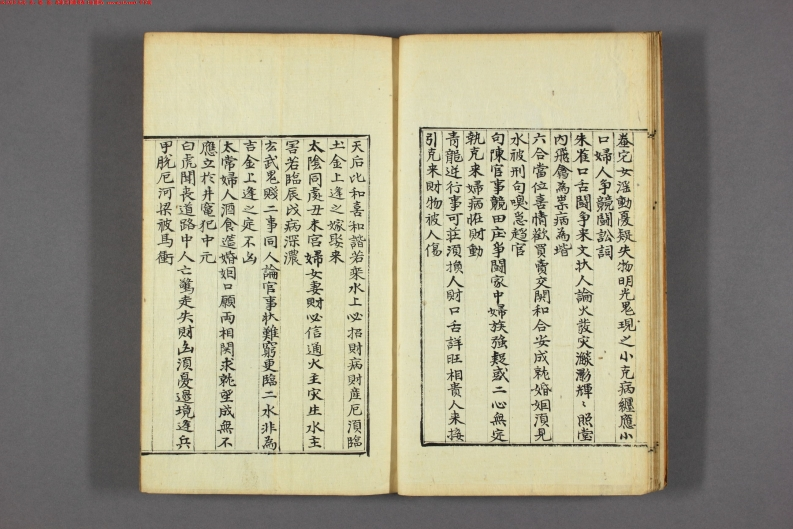 蚕宅女淫動憂疑失物明光鬼現之小克病纏應小
口婦人爭競鬪訟詞
朱雀口舌鬪爭来文状人論火發灾
内飛禽為祟病為堦
六合當位喜情歡買賣交関和合安成就婚姻須見
水被刑勾嗅怱趍官
勾陳官事競田庄爭鬪家中婦族強疑或二心無定
執克来婦病在財動
青龍逆行事可託須換人財口舌詳旺相貴人来接
引克来財物被人傷
天后比和喜和諧若乗水上必招財病財産厄須臨
土金上逢之嫁娶来
太陰同處丑未宮婦女妻財必信通火主灾生水主
害若臨辰戌病深濃
玄武鬼賊二事同人論官事状難窮更臨二水非為
吉金上逢之定不凶
太常婦人酒食筵婚姻口願両相関求就望成無不
應立於井竈犯中元
白虎聞喪道路中人亡驚走失財凶須憂邊境逢兵
甲脱厄河梁被馬衝